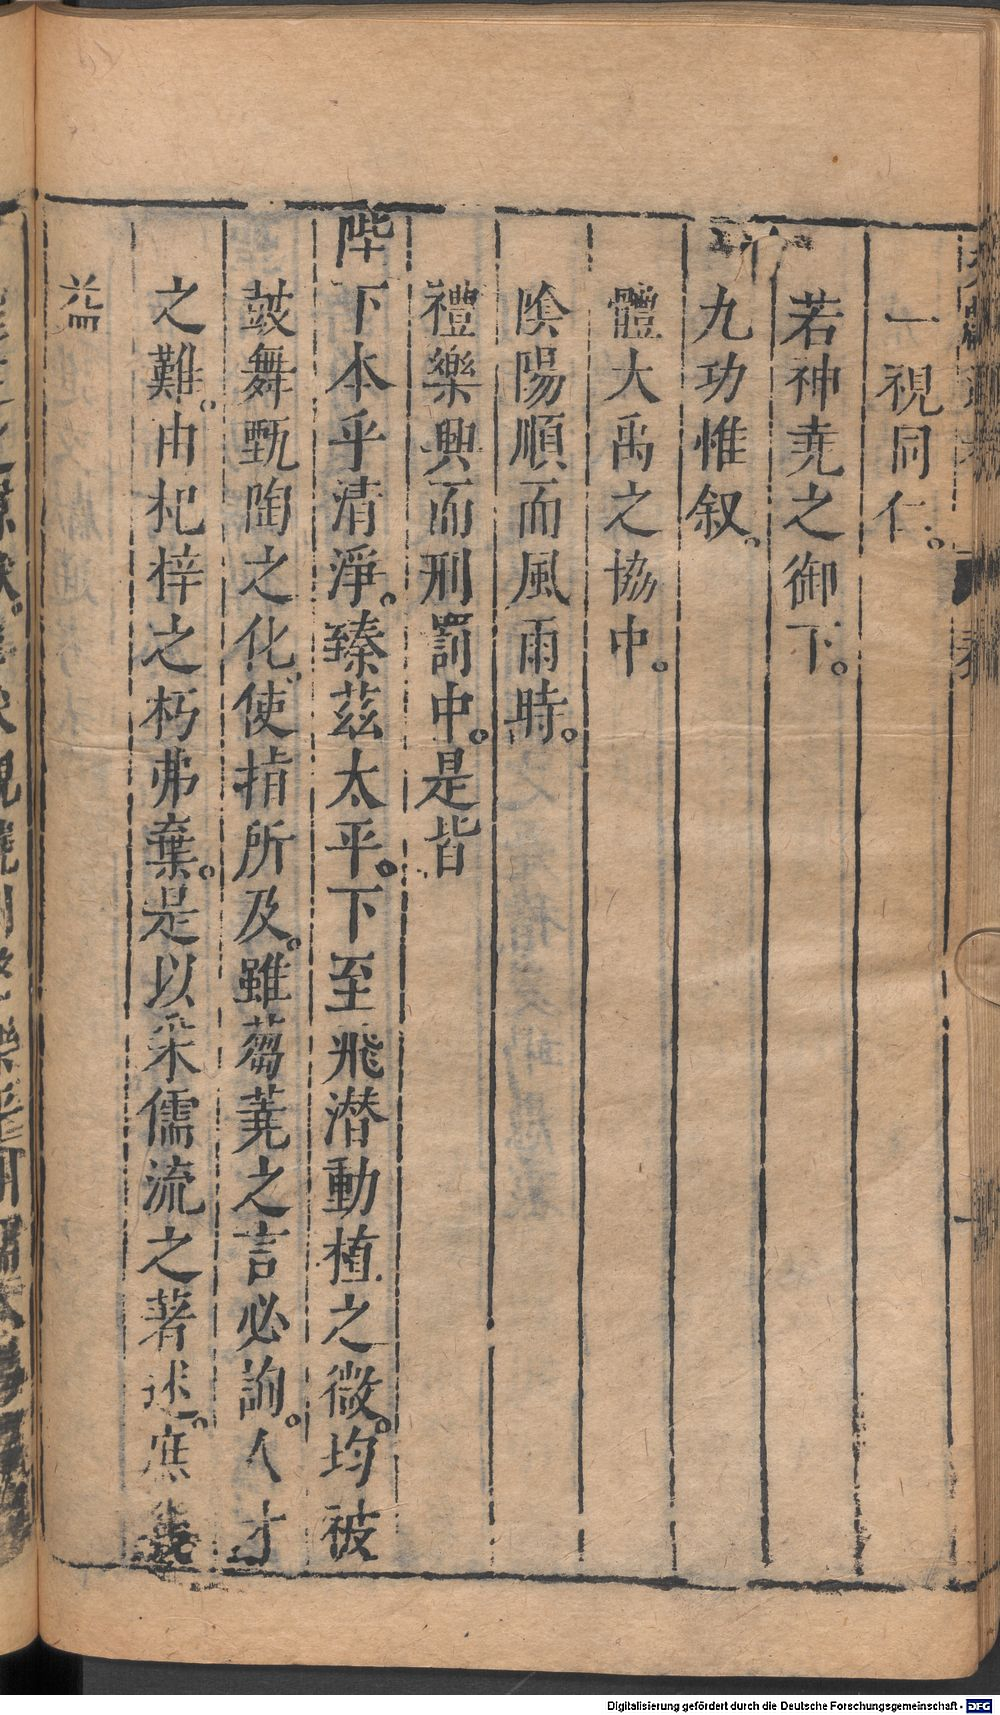 一視同仁。
若神尭之御下。
九功惟叙。
體大禹之協中。
陰陽順而風雨時。
禮樂興而刑罰中。是皆
陛下本乎清淨。臻茲太平。下至飛潛動植之微。均被
鼓舞甄陶之化。使指所及。雖蒭蕘之言必詢。人才
之難。由杞梓之朽弗棄。是以采儒流之著述。庶
益
Digitalisierung gefördert durch die Deutsche Forschungsgemeinschaft - DFG